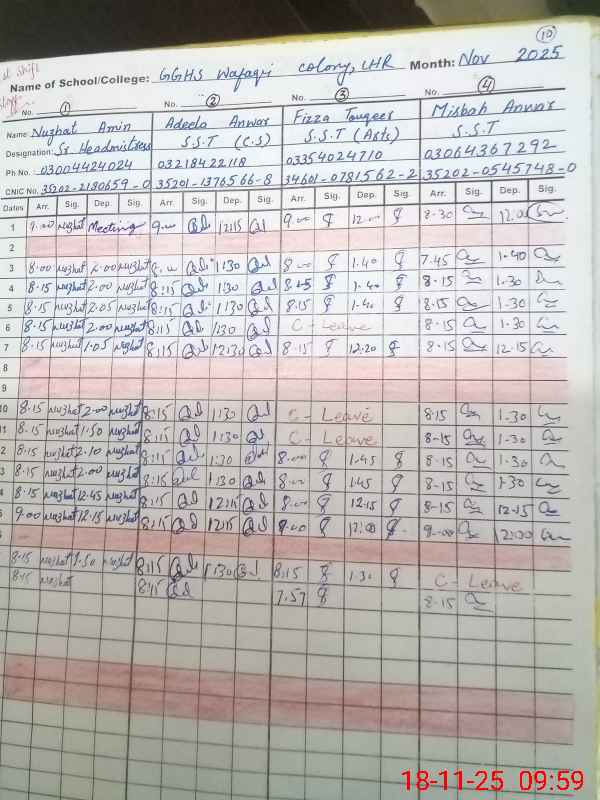 10
Name of School/College: GGHS Wafaqi colony, LHR Month: Nov 2025
No. 1 No. 2 No. 3 No. 4
Name: Nuzhat Amin Adeela Anwar Fizza Tauqeer Misbah Anwar
Designation: Sr Headmistress S.S.T (C.S) S.S.T (Arts) S.S.T
Ph No. 03004424024 03218422118 03354024710 03064367292
CNIC No. 35202-2180659-0 35201-1376566-8 34601-0781562-2 35202-0545748-0
Dates Arr. Sig. Dep. Sig. Arr. Sig. Dep. Sig. Arr. Sig. Dep. Sig. Arr. Sig. Dep. Sig.
1 9.00 Nuzhat Meeting 12:15 9.00 12.00 8-30 12.00
2
3 8.00 Nuzhat 2.00 Nuzhat 1:30 8.00 1.40 7.45 1.40
4 8.15 Nuzhat 2.00 Nuzhat 8:15 1:30 8.15 1.40 8-15 1.30
5 8.15 Nuzhat 2.05 Nuzhat 8:15 1:30 8.15 1.40 8-15 1-30
6 8.15 Nuzhat 2.00 Nuzhat 8:15 1:30 C-Leave 8-15 1-30
7 8.15 Nuzhat 1.05 Nuzhat 8:15 12:30 8-15 12.20 8-15 12-15
8
9
10 8.15 Nuzhat 2.00 Nuzhat 8:15 1:30 C-Leave 8.15 1.30
11 8.15 Nuzhat 1.50 Nuzhat 8:15 1:30 C-Leave 8-15 1-30
2 8.15 Nuzhat 2.10 Nuzhat 8:15 1:30 8.00 1.45 8-15 1-30
3 8.15 Nuzhat 2.00 Nuzhat 8:15 1:30 8.00 1.45 8-15 1-30
4 8.15 Nuzhat 12.45 Nuzhat 8:15 12:15 8.00 12.15 8-15 12-15
5 9.00 Nuzhat 12.15 Nuzhat 8:15 12:15 9.00 12:00 9-00 12:00
8.15 Nuzhat 1.50 Nuzhat 8:15 1:30 8:15 1.30 C-Leave
8.15 Nuzhat 8:15 7.57 8-15
18-11-25 09:59